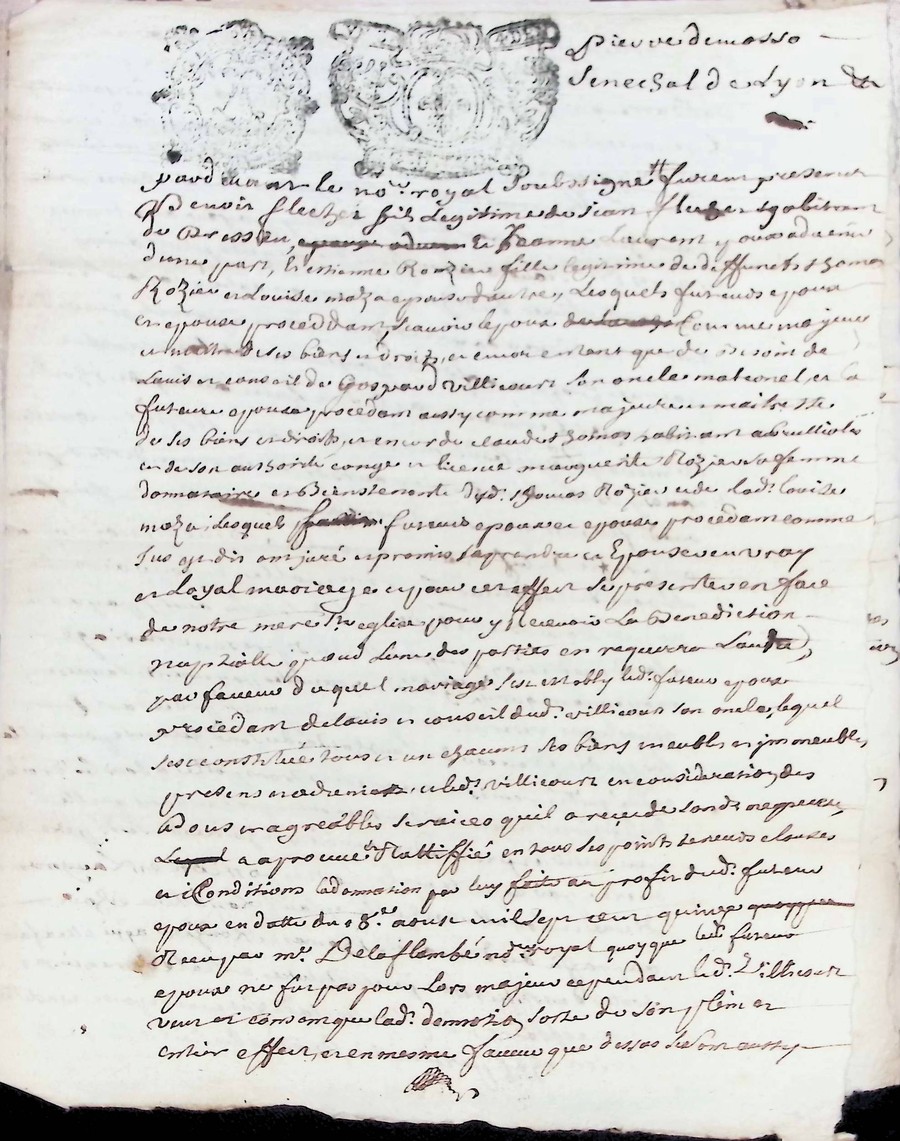 Pierre demasso
senechal de Lyon &a
pardevant le nore royal soubssigne furent presents
Benoit flechet fils Legitime de jean flechet habitant
de Bressieu, et Jeanne Laurent y
d'une part, Et estienne Rozier fille legitime de deffuncts thomas
Rozier et Louise maza epouse d'autre, Lesquels futurs epoux
et epouse proceddant, scavoir lepoux comme majeur
et maitre de ses biens et droits, et encor entant que de Besoin de
Lavis et conseil de Gaspard villicourt son oncle maternel, et la
future epouse procedant aussy comme majeure et maitresse
de ses biens et droits, et encor de claude thomas habitant a brullioles
et de son authorité congé et licence marguerite Rozier sa femme
donnataire et Bienstenante dud. thomas Rozier et de lad. louise
maza, Lesquels futurs epoux et epouse procedant comme
sus est dit ont juré et promis se prendre et Epouser en vray
et Loyal mariage et pour cet effect se presenter en face
de notre mere Ste eglise pour y Recevoir La Benediction
nuptialle quand L'une des parties en requerra Lautre,
par faveur duquel mariage s'est estably led. futur epoux
procedant de lavis et conseil dud. villicourt son oncle, lequel
sest constitué tous et un chacuns ses biens meubles et immeubles
presens et advenir, et led. villicourt en consideration des
et agreables services qu'il a reçeu de sond. nepveu,
a approuvé Rattiffié en tous ses points teneurs clauses
et Conditions la donnation par luy faite au profit dud. futur
epoux en datte du 18e aoust mil sept cent quinze
Receu par me Delaflambé nore royal quoyque led. futur
epoux ne fut pas pour Lors majeur cependant led. Villicourt
veut et consent que lad. donnation sorte de son plein et
entier effect, et en mesme faveur que dessus se sont aussy